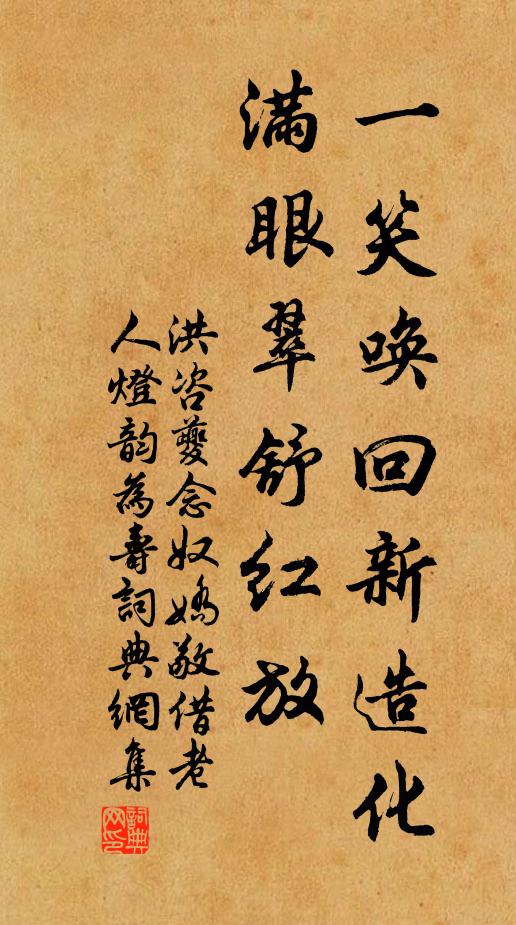 一笑喚回新造化
滿眼翠舒紅放
洪咨夔念奴嬌敬借老
人燈韵為壽詞典網集
詞典
网印